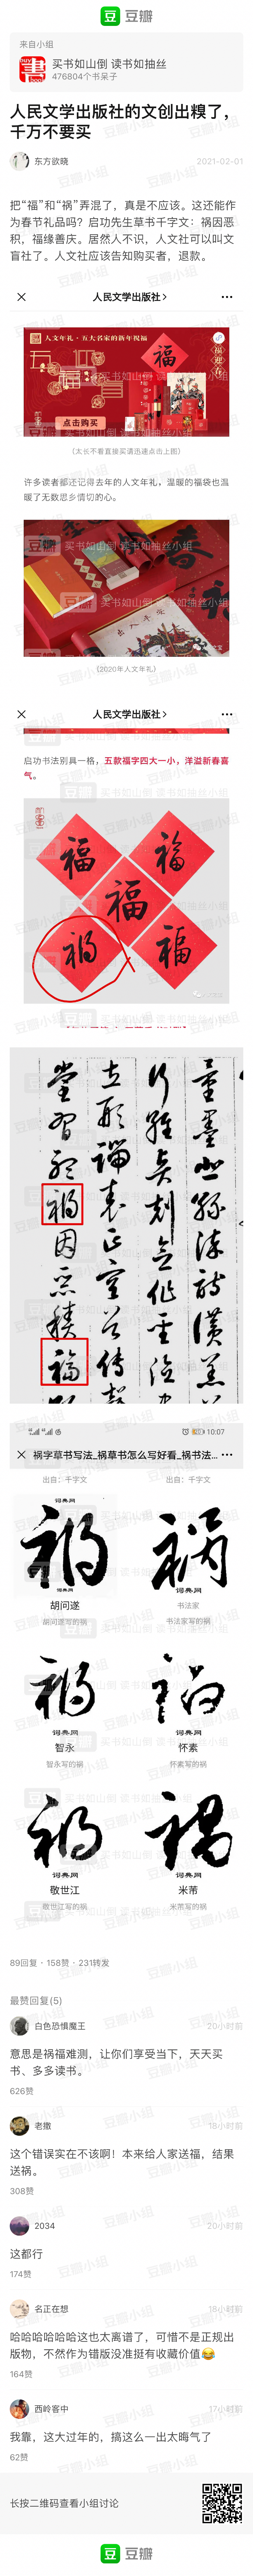 豆瓣
来自小组
买书如山倒 读书如抽丝
476804个书呆子
人民文学出版社的文创出糗了，
千万不要买
东方欲晓
2021-02-01
把“福”和“祸”弄混了，真是不应该。这还能作
为春节礼品吗？启功先生草书千字文：祸因恶
积，福缘善庆。居然人不识，人文社可以叫文
盲社了。人文社应该告知购买者，退款。
人民文学出版社
人文年礼·五大名家的新年祝福
福
点击购买
（太长不看直接买请迅速点击上图）
许多读者都还记得去年的人文年礼，温暖的福袋也温
暖了无数思乡情切的心。
（2020年人文年礼）
人民文学出版社
启功书法别具一格，五款福字四大一小，洋溢新春喜
气。
福
福
福
祸
福
祸
因
恶
积
福
10:07
祸字草书写法_祸草书怎么写好看_祸书法...
出自：千字文
出自：千字文
词典网
胡问遂
胡问遂写的祸
词典网
书法家
书法家写的祸
词典网
智永
智永写的祸
词典网
怀素
怀素写的祸
词典网
敬世江
敬世江写的祸
词典网
米芾
米芾写的祸
89回复 · 158赞 · 231转发
最赞回复(5)
白色恐惧魔王
20小时前
意思是祸福难测，让你们享受当下，天天买
书、多多读书。
626赞
老撒
18小时前
这个错误实在不该啊！本来给人家送福，结果
送祸。
308赞
2034
20小时前
这都行
174赞
名正在想
18小时前
哈哈哈哈哈哈这也太离谱了，可惜不是正规出
版物，不然作为错版没准挺有收藏价值😂
164赞
西岭客中
17小时前
我靠，这大过年的，搞这么一出太晦气了
62赞
长按二维码查看小组讨论
豆瓣